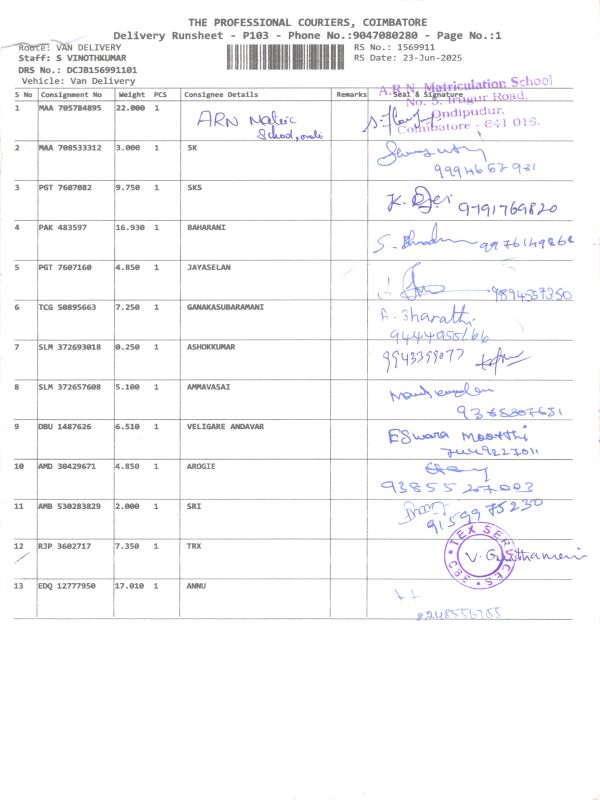 THE PROFESSIONAL COURIERS, COIMBATORE
Delivery Runsheet - P103 - Phone No.:9047080280 - Page No.:1
Route: VAN DELIVERY
RS No.: 1569911
Staff: S VINOTHKUMAR
RS Date: 23-Jun-2025
DRS No.: DCJB156991101
Vehicle: Van Delivery
S No Consignment No Weight PCS Consignee Details Remarks Seal & Signature
A.R.N. Matriculation School
No. 5, Irugur Road,
Ondipudur.
Coimbatore - 641 016.
1 MAA 705784895 22.000 1 ARN Matric
School,
2 MAA 708533312 3.000 1 SK
3 PGT 7607082 9.750 1 SKS 9791769820
4 PAK 483597 16.930 1 BAHARANI
5 PGT 7607160 4.850 1 JAYASELAN 9894557350
6 TCG 50895663 7.250 1 GANAKASUBARAMANI A. Bharathi
7 SLM 372693018 0.250 1 ASHOKKUMAR 9943399077
8 SLM 372657608 5.100 1 AMMAVASAI
9 DBU 1487626 6.510 1 VELIGARE ANDAVAR ESwara Moorthi
10 AMD 30429671 4.850 1 AROGIE
93855 207003
11 AMB 530283829 2.000 1 SRI 9159975230
12 RJP 3602717 7.350 1 TRX TEX SERVICES CBE
13 EDQ 12777950 17.010 1 ANNU
8248556755